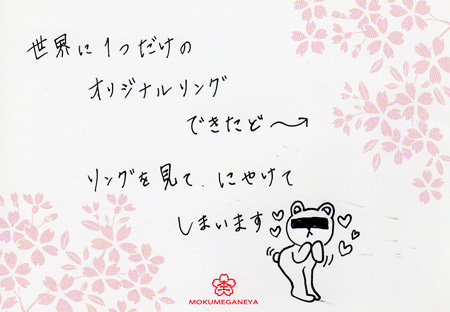 世界に1つだけの
オリジナルリング
できたど〜→
リングを見て、にやけて
しまいます
MOKUMEGANEYA